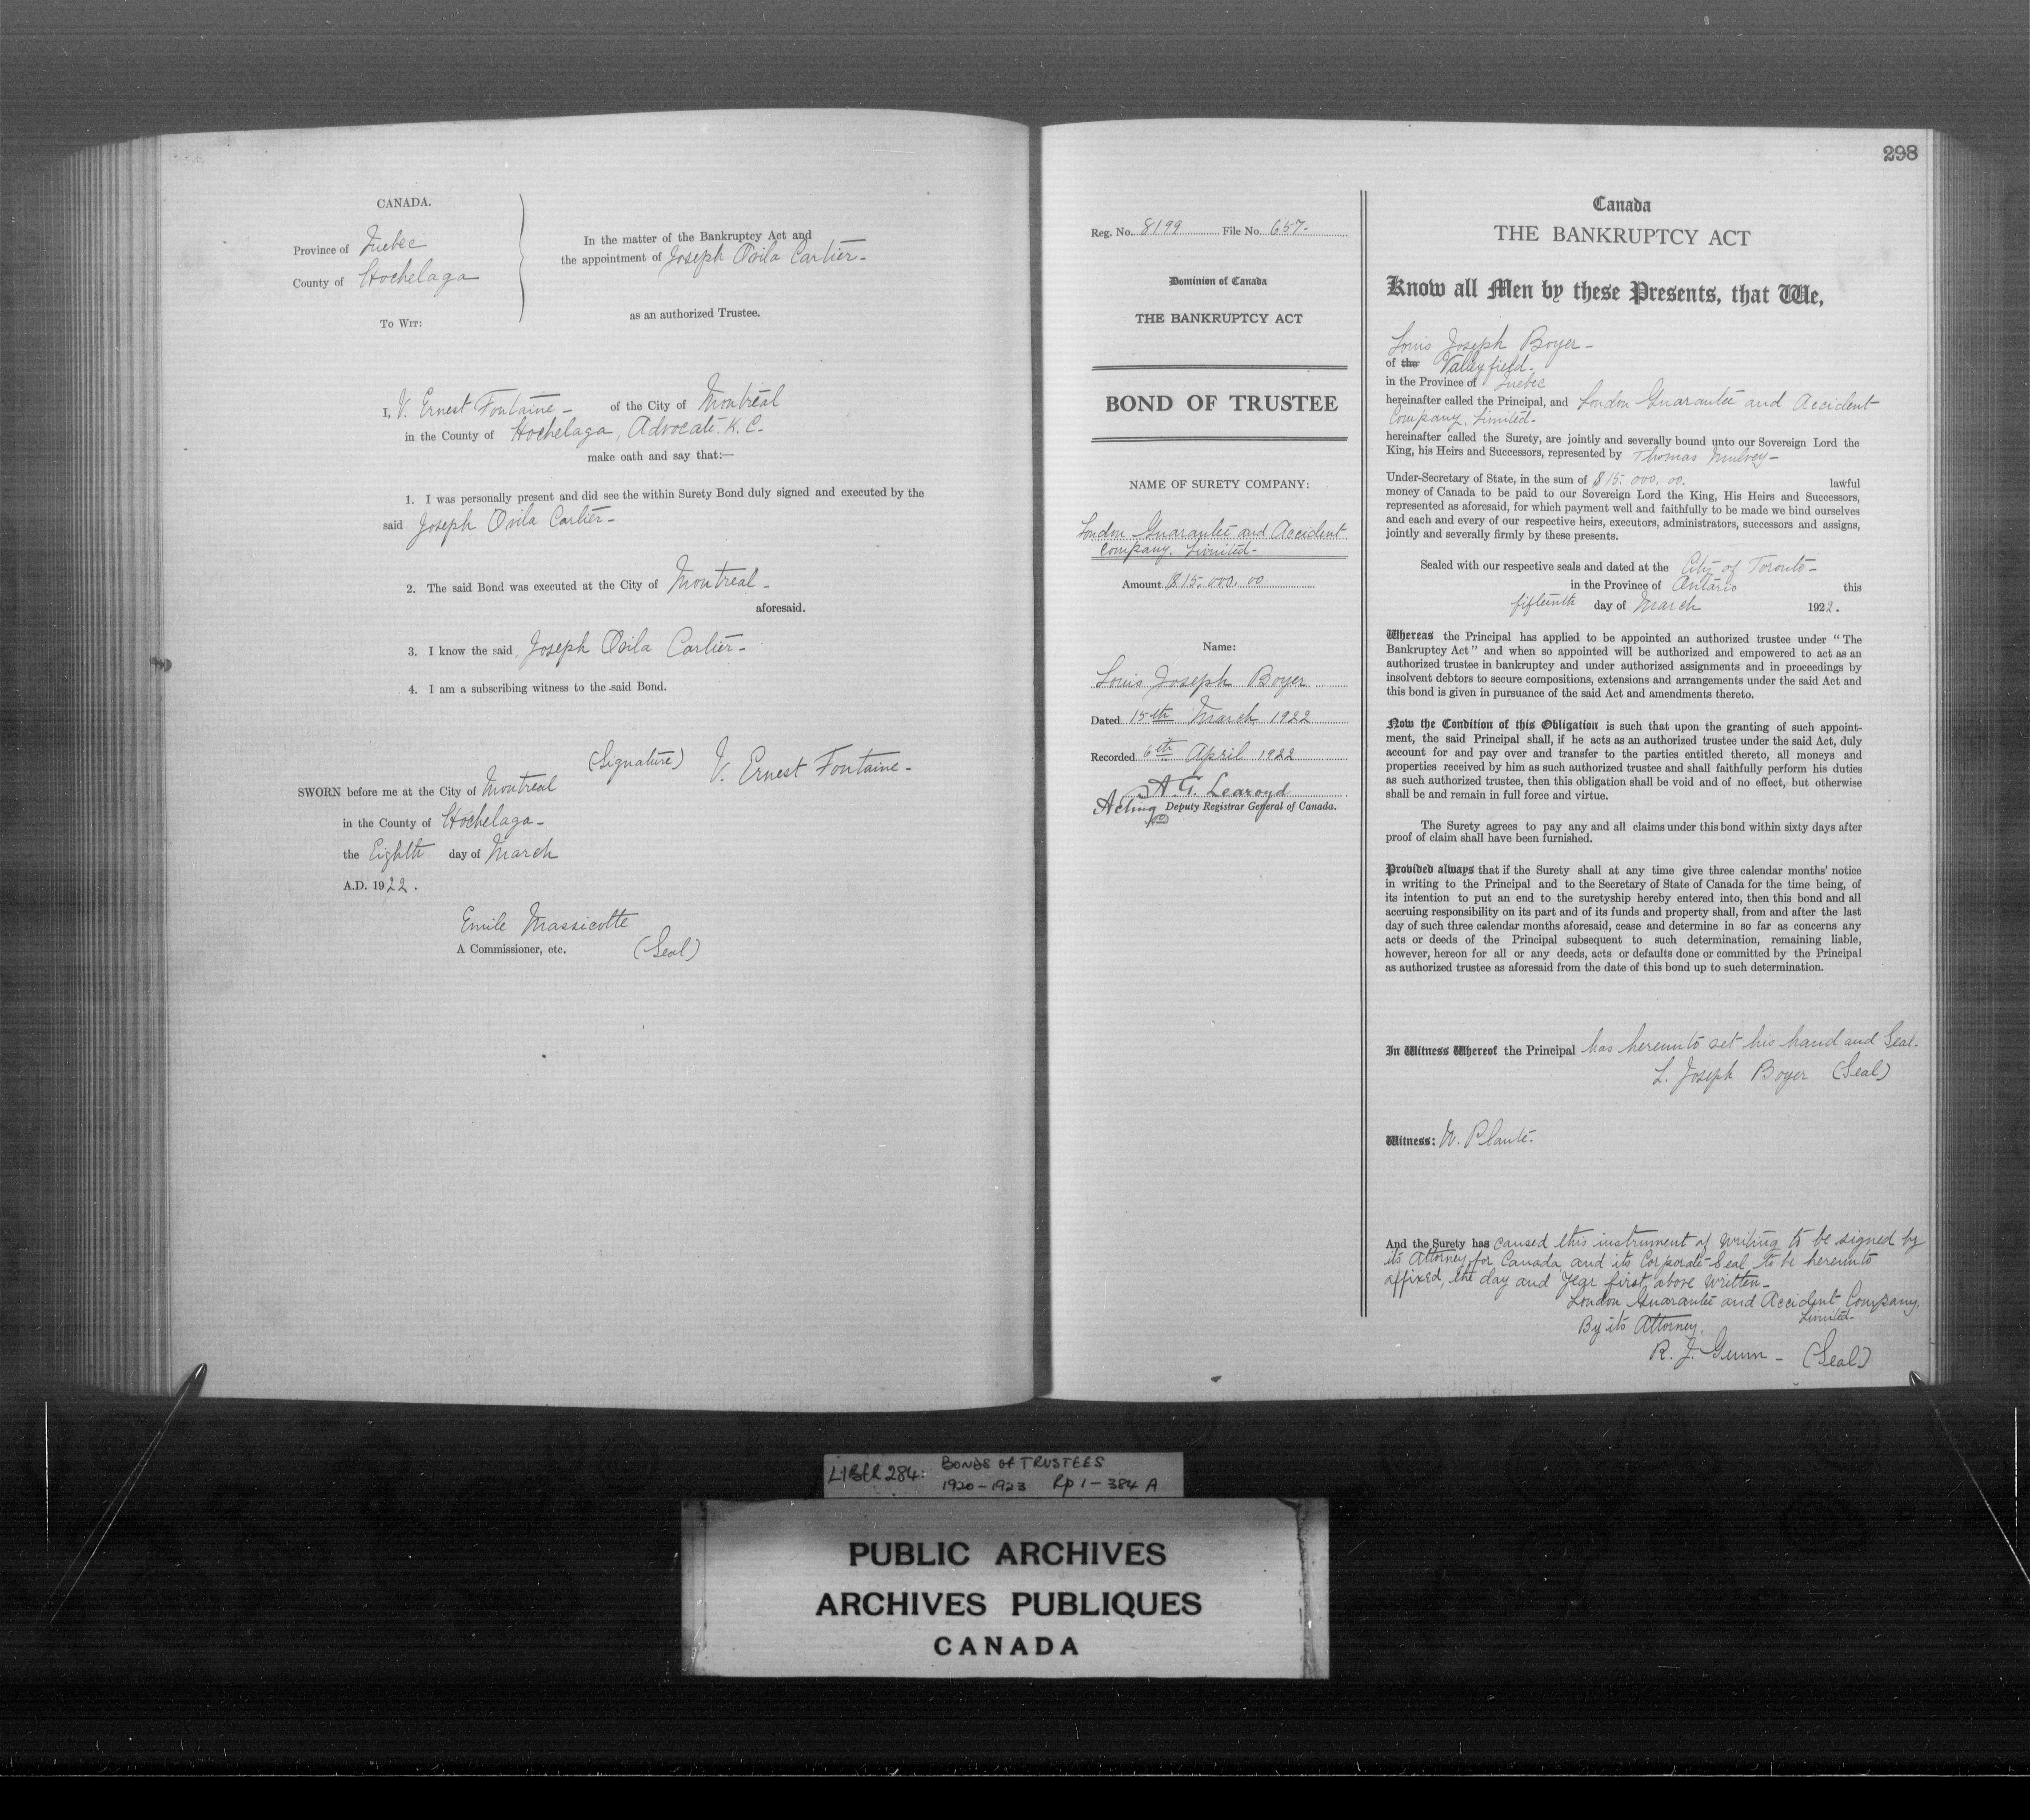 CANADA.
Province of Quebec
County of Hochelaga
To Wit:
In the matter of the Bankruptcy Act and
the appointment of Joseph Ovila Cartier-
as an authorized Trustee.
I, V. Ernest Fontaine - of the City of Montreal
in the County of Hochelaga, Advocate. K. C-
make oath and say that:—
1. I was personally present and did see the within Surety Bond duly signed and executed by the
said Joseph Ovila Cartier-
2. The said Bond was executed at the City of Montreal-
aforesaid.
3. I know the said Joseph Ovila Cartier-
4. I am a subscribing witness to the said Bond.
(Signature) V. Ernest Fontaine-
SWORN before me at the City of Montreal
in the County of Hochelaga-
the Eighth day of March
A.D. 1922.
Emile Massicotte
A Commissioner, etc. (Seal)
298
Reg. No. 8199 File No. 657-
Dominion of Canada
THE BANKRUPTCY ACT
BOND OF TRUSTEE
NAME OF SURETY COMPANY:
London Guarantee and Accident
Company. Limited-
Amount $15.000.00
Name:
Louis Joseph Boyer
Dated 15th March 1922
Recorded 6th April 1922
A. G. Learoyd
Acting Deputy Registrar General of Canada.
Canada
THE BANKRUPTCY ACT
Know all Men by these Presents, that We,
Louis Joseph Boyer-
of the Valleyfield-
in the Province of Quebec
hereinafter called the Principal, and London Guarantee and Accident
Company. Limited-
hereinafter called the Surety, are jointly and severally bound unto our Sovereign Lord the
King, his Heirs and Successors, represented by Thomas Mulvey-
Under-Secretary of State, in the sum of $15.000.00. lawful
money of Canada to be paid to our Sovereign Lord the King, His Heirs and Successors,
represented as aforesaid, for which payment well and faithfully to be made we bind ourselves
and each and every of our respective heirs, executors, administrators, successors and assigns,
jointly and severally firmly by these presents.
Sealed with our respective seals and dated at the City of Toronto-
in the Province of Ontario this
fifteenth day of March 1922.
Whereas the Principal has applied to be appointed an authorized trustee under "The
Bankruptcy Act" and when so appointed will be authorized and empowered to act as an
authorized trustee in bankruptcy and under authorized assignments and in proceedings by
insolvent debtors to secure compositions, extensions and arrangements under the said Act and
this bond is given in pursuance of the said Act and amendments thereto.
Now the Condition of this Obligation is such that upon the granting of such appoint-
ment, the said Principal shall, if he acts as an authorized trustee under the said Act, duly
account for and pay over and transfer to the parties entitled thereto, all moneys and
properties received by him as such authorized trustee and shall faithfully perform his duties
as such authorized trustee, then this obligation shall be void and of no effect, but otherwise
shall be and remain in full force and virtue.
The Surety agrees to pay any and all claims under this bond within sixty days after
proof of claim shall have been furnished.
Provided always that if the Surety shall at any time give three calendar months' notice
in writing to the Principal and to the Secretary of State of Canada for the time being, of
its intention to put an end to the suretyship hereby entered into, then this bond and all
accruing responsibility on its part and of its funds and property shall, from and after the last
day of such three calendar months aforesaid, cease and determine in so far as concerns any
acts or deeds of the Principal subsequent to such determination, remaining liable,
however, hereon for all or any deeds, acts or defaults done or committed by the Principal
as authorized trustee as aforesaid from the date of this bond up to such determination.
In Witness Whereof the Principal has hereunto set his hand and Seal-
L. Joseph Boyer (Seal)
Witness: Plante-
And the Surety has caused this instrument of writing to be signed by
its Attorney for Canada, and its Corporate Seal to be hereunto
affixed, the day and year first above written-
London Guarantee and Accident Company,
Limited-
By its Attorney.
R. J. Gunn - (Seal)
LIBER 284: BONDS OF TRUSTEES
1920-1923 Rp 1-384 A
PUBLIC ARCHIVES
ARCHIVES PUBLIQUES
CANADA